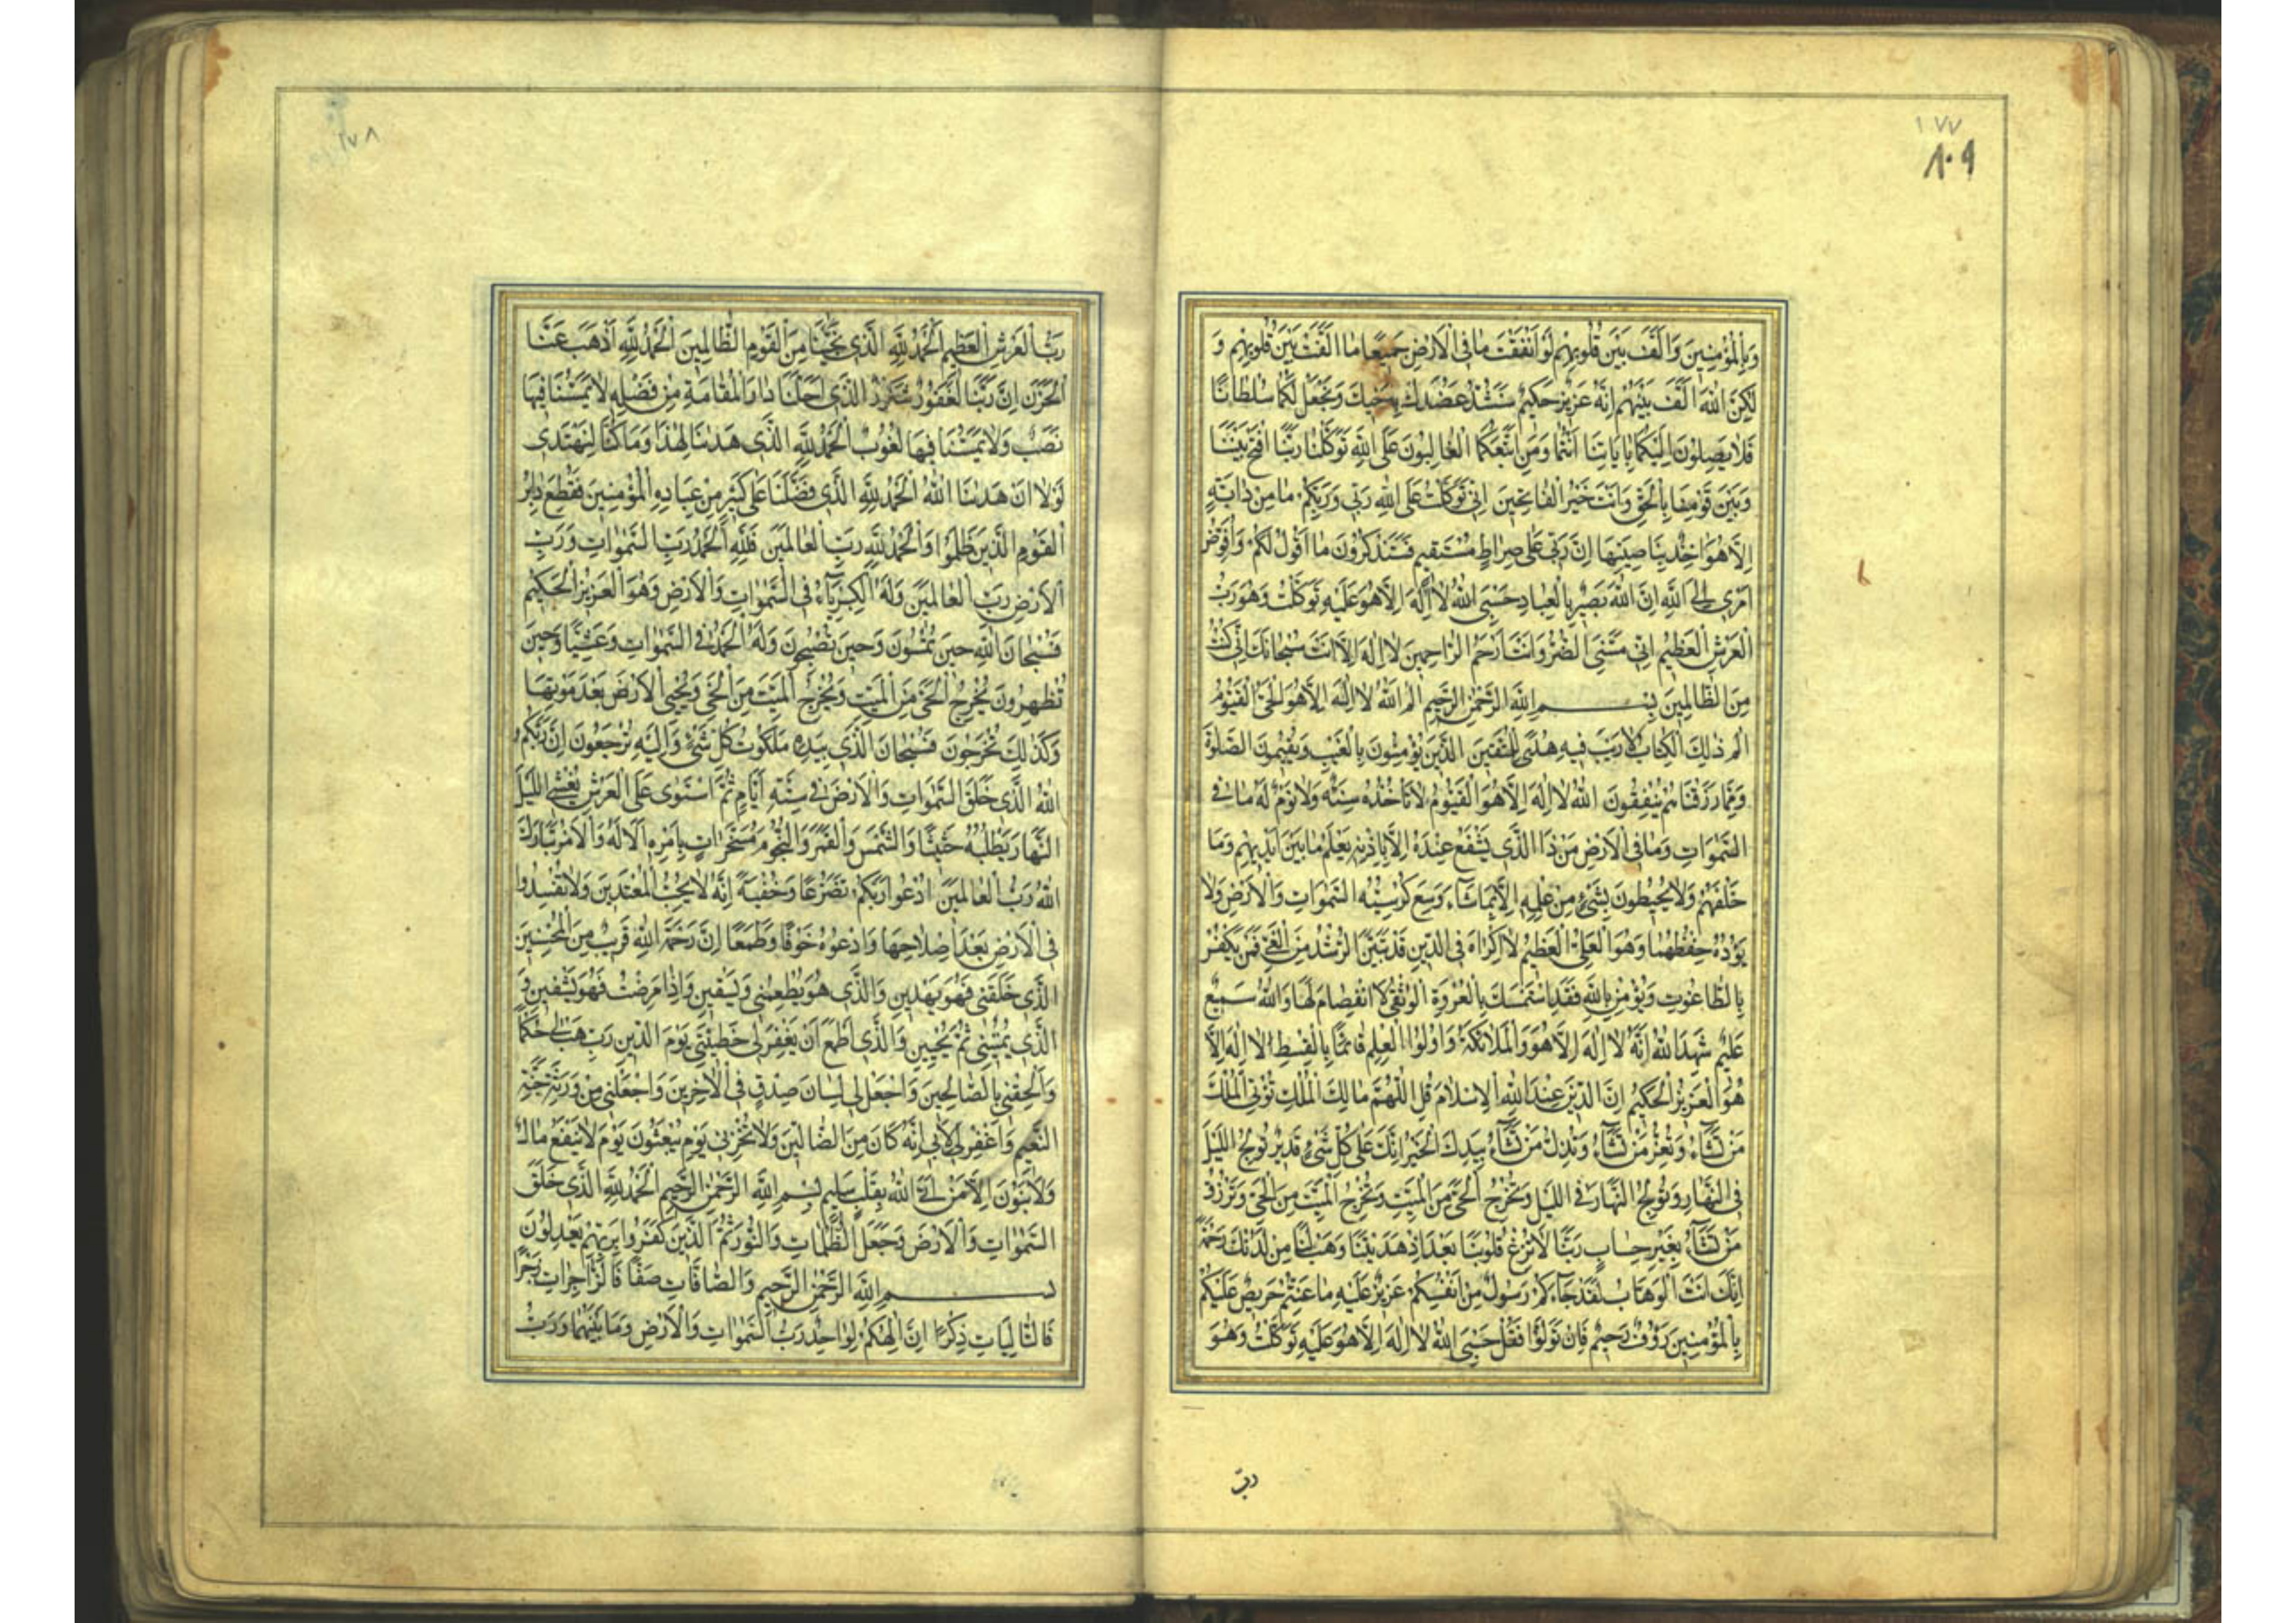 ١٧٧
٨٠٩
وَبِالْمُؤْمِنِينَ وَاَلَّفَ بَيْنَ قُلُوبِهِمْ لَوْ اَنْفَقْتَ مٰا فِى الْاَرْضِ جَمِيعًا مٰا اَلَّفْتَ بَيْنَ قُلُوبِهِمْ وَ
لٰكِنَّ اللّٰهَ اَلَّفَ بَيْنَهُمْ اِنَّهُ عَزِيزٌ حَكِيمٌ سَنَشُدُّ عَضُدَكَ بِاَخِيكَ وَنَجْعَلُ لَكُمٰا سُلْطٰانًا
فَلٰا يَصِلُونَ اِلَيْكُمٰا بِاٰيٰاتِنٰا اَنْتُمٰا وَمَنِ اتَّبَعَكُمَا الْغٰالِبُونَ عَلَى اللّٰهِ تَوَكَّلْنٰا رَبَّنَا افْتَحْ بَيْنَنٰا
وَبَيْنَ قَوْمِنٰا بِالْحَقِّ وَاَنْتَ خَيْرُ الْفٰاتِحِينَ اِنِّى تَوَكَّلْتُ عَلَى اللّٰهِ رَبِّى وَرَبِّكُمْ مٰا مِنْ دٰابَّةٍ
اِلّٰا هُوَ اٰخِذٌ بِنٰاصِيَتِهٰا اِنَّ رَبِّى عَلٰى صِرٰاطٍ مُسْتَقِيمٍ فَسَتَذْكُرُونَ مٰا اَقُولُ لَكُمْ وَاُفَوِّضُ
اَمْرِى اِلَى اللّٰهِ اِنَّ اللّٰهَ بَصِيرٌ بِالْعِبٰادِ حَسْبِىَ اللّٰهُ لٰا اِلٰهَ اِلّٰا هُوَ عَلَيْهِ تَوَكَّلْتُ وَهُوَ رَبُّ
الْعَرْشِ الْعَظِيمِ اِنِّى مَسَّنِىَ الضُّرُّ وَاَنْتَ اَرْحَمُ الرّٰاحِمِينَ لٰا اِلٰهَ اِلّٰا اَنْتَ سُبْحٰانَكَ اِنِّى كُنْتُ
مِنَ الظّٰالِمِينَ بِسْمِ اللّٰهِ الرَّحْمٰنِ الرَّحِيمِ الم اللّٰهُ لٰا اِلٰهَ اِلّٰا هُوَ الْحَىُّ الْقَيُّومُ
الم ذٰلِكَ الْكِتٰابُ لٰا رَيْبَ فِيهِ هُدًى لِلْمُتَّقِينَ الَّذِينَ يُؤْمِنُونَ بِالْغَيْبِ وَيُقِيمُونَ الصَّلٰوةَ
وَمِمّٰا رَزَقْنٰاهُمْ يُنْفِقُونَ اللّٰهُ لٰا اِلٰهَ اِلّٰا هُوَ الْقَيُّومُ لٰا تَأْخُذُهُ سِنَةٌ وَلٰا نَوْمٌ لَهُ مٰا فِى
السَّمٰوٰاتِ وَمٰا فِى الْاَرْضِ مَنْ ذَا الَّذِى يَشْفَعُ عِنْدَهُ اِلّٰا بِاِذْنِهِ يَعْلَمُ مٰا بَيْنَ اَيْدِيهِمْ وَمٰا
خَلْفَهُمْ وَلٰا يُحِيطُونَ بِشَىْءٍ مِنْ عِلْمِهِ اِلّٰا بِمٰا شٰاءَ وَسِعَ كُرْسِيُّهُ السَّمٰوٰاتِ وَالْاَرْضَ وَلٰا
يَؤُدُهُ حِفْظُهُمٰا وَهُوَ الْعَلِىُّ الْعَظِيمُ لٰا اِكْرٰاهَ فِى الدِّينِ قَدْ تَبَيَّنَ الرُّشْدُ مِنَ الْغَىِّ فَمَنْ يَكْفُرْ
بِالطّٰاغُوتِ وَيُؤْمِنْ بِاللّٰهِ فَقَدِ اسْتَمْسَكَ بِالْعُرْوَةِ الْوُثْقٰى لَا انْفِصٰامَ لَهٰا وَاللّٰهُ سَمِيعٌ
عَلِيمٌ شَهِدَ اللّٰهُ اَنَّهُ لٰا اِلٰهَ اِلّٰا هُوَ وَالْمَلٰائِكَةُ وَاُولُوا الْعِلْمِ قٰائِمًا بِالْقِسْطِ لٰا اِلٰهَ اِلّٰا
هُوَ الْعَزِيزُ الْحَكِيمُ اِنَّ الدِّينَ عِنْدَ اللّٰهِ الْاِسْلٰامُ قُلِ اللّٰهُمَّ مٰالِكَ الْمُلْكِ تُؤْتِى الْمُلْكَ
مَنْ تَشٰاءُ وَتُعِزُّ مَنْ تَشٰاءُ وَتُذِلُّ مَنْ تَشٰاءُ بِيَدِكَ الْخَيْرُ اِنَّكَ عَلٰى كُلِّ شَىْءٍ قَدِيرٌ تُولِجُ اللَّيْلَ
فِى النَّهٰارِ وَتُولِجُ النَّهٰارَ فِى اللَّيْلِ وَتُخْرِجُ الْحَىَّ مِنَ الْمَيِّتِ وَتُخْرِجُ الْمَيِّتَ مِنَ الْحَىِّ وَتَرْزُقُ
مَنْ تَشٰاءُ بِغَيْرِ حِسٰابٍ رَبَّنٰا لٰا تُزِغْ قُلُوبَنٰا بَعْدَ اِذْ هَدَيْتَنٰا وَهَبْ لَنٰا مِنْ لَدُنْكَ رَحْمَةً
اِنَّكَ اَنْتَ الْوَهّٰابُ لَقَدْ جٰاءَكُمْ رَسُولٌ مِنْ اَنْفُسِكُمْ عَزِيزٌ عَلَيْهِ مٰا عَنِتُّمْ حَرِيصٌ عَلَيْكُمْ
بِالْمُؤْمِنِينَ رَؤُفٌ رَحِيمٌ فَاِنْ تَوَلَّوْا فَقُلْ حَسْبِىَ اللّٰهُ لٰا اِلٰهَ اِلّٰا هُوَ عَلَيْهِ تَوَكَّلْتُ وَهُوَ
ربّ
١٧٨
رَبُّ الْعَرْشِ الْعَظِيمِ اَلْحَمْدُ لِلّٰهِ الَّذِى نَجّٰينٰا مِنَ الْقَوْمِ الظّٰالِمِينَ اَلْحَمْدُ لِلّٰهِ اَذْهَبَ عَنَّا
الْحَزَنَ اِنَّ رَبَّنٰا لَغَفُورٌ شَكُورٌ الَّذِى اَحَلَّنٰا دٰارَ الْمُقٰامَةِ مِنْ فَضْلِهِ لٰا يَمَسُّنٰا فِيهٰا
نَصَبٌ وَلٰا يَمَسُّنٰا فِيهٰا لُغُوبٌ اَلْحَمْدُ لِلّٰهِ الَّذِى هَدٰينٰا لِهٰذٰا وَمٰا كُنّٰا لِنَهْتَدِىَ
لَوْلٰا اَنْ هَدٰينَا اللّٰهُ اَلْحَمْدُ لِلّٰهِ الَّذِى فَضَّلَنٰا عَلٰى كَثِيرٍ مِنْ عِبٰادِهِ الْمُؤْمِنِينَ فَقُطِعَ دٰابِرُ
الْقَوْمِ الَّذِينَ ظَلَمُوا وَالْحَمْدُ لِلّٰهِ رَبِّ الْعٰالَمِينَ فَلِلّٰهِ الْحَمْدُ رَبِّ السَّمٰوٰاتِ وَرَبِّ
الْاَرْضِ رَبِّ الْعٰالَمِينَ وَلَهُ الْكِبْرِيٰاءُ فِى السَّمٰوٰاتِ وَالْاَرْضِ وَهُوَ الْعَزِيزُ الْحَكِيمُ
فَسُبْحٰانَ اللّٰهِ حِينَ تُمْسُونَ وَحِينَ تُصْبِحُونَ وَلَهُ الْحَمْدُ فِى السَّمٰوٰاتِ وَعَشِيًّا وَحِينَ
تُظْهِرُونَ يُخْرِجُ الْحَىَّ مِنَ الْمَيِّتِ وَيُخْرِجُ الْمَيِّتَ مِنَ الْحَىِّ وَيُحْيِى الْاَرْضَ بَعْدَ مَوْتِهٰا
وَكَذٰلِكَ تُخْرَجُونَ فَسُبْحٰانَ الَّذِى بِيَدِهِ مَلَكُوتُ كُلِّ شَىْءٍ وَاِلَيْهِ تُرْجَعُونَ اِنَّ رَبَّكُمُ
اللّٰهُ الَّذِى خَلَقَ السَّمٰوٰاتِ وَالْاَرْضَ فِى سِتَّةِ اَيّٰامٍ ثُمَّ اسْتَوٰى عَلَى الْعَرْشِ يُغْشِى اللَّيْلَ
النَّهٰارَ يَطْلُبُهُ حَثِيثًا وَالشَّمْسَ وَالْقَمَرَ وَالنُّجُومَ مُسَخَّرٰاتٍ بِاَمْرِهِ اَلٰا لَهُ وَالْاَمْرُ تَبٰارَكَ
اللّٰهُ رَبُّ الْعٰالَمِينَ اُدْعُوا رَبَّكُمْ تَضَرُّعًا وَخُفْيَةً اِنَّهُ لٰا يُحِبُّ الْمُعْتَدِينَ وَلٰا تُفْسِدُوا
فِى الْاَرْضِ بَعْدَ اِصْلٰاحِهٰا وَادْعُوهُ خَوْفًا وَطَمَعًا اِنَّ رَحْمَةَ اللّٰهِ قَرِيبٌ مِنَ الْمُحْسِنِينَ
الَّذِى خَلَقَنِى فَهُوَ يَهْدِينِ وَالَّذِى هُوَ يُطْعِمُنِى وَيَسْقِينِ وَاِذٰا مَرِضْتُ فَهُوَ يَشْفِينِ وَ
الَّذِى يُمِيتُنِى ثُمَّ يُحْيِينِ وَالَّذِى اَطْمَعُ اَنْ يَغْفِرَ لِى خَطِيئَتِى يَوْمَ الدِّينِ رَبِّ هَبْ لِى حُكْمًا
وَاَلْحِقْنِى بِالصّٰالِحِينَ وَاجْعَلْ لِى لِسٰانَ صِدْقٍ فِى الْاٰخِرِينَ وَاجْعَلْنِى مِنْ وَرَثَةِ جَنَّةِ
النَّعِيمِ وَاغْفِرْ لِاَبِى اِنَّهُ كٰانَ مِنَ الضّٰالِّينَ وَلٰا تُخْزِنِى يَوْمَ يُبْعَثُونَ يَوْمَ لٰا يَنْفَعُ مٰالٌ
وَلٰا بَنُونَ اِلّٰا مَنْ اَتَى اللّٰهَ بِقَلْبٍ سَلِيمٍ بِسْمِ اللّٰهِ الرَّحْمٰنِ الرَّحِيمِ اَلْحَمْدُ لِلّٰهِ الَّذِى خَلَقَ
السَّمٰوٰاتِ وَالْاَرْضَ وَجَعَلَ الظُّلُمٰاتِ وَالنُّورَ ثُمَّ الَّذِينَ كَفَرُوا بِرَبِّهِمْ يَعْدِلُونَ
بِسْمِ اللّٰهِ الرَّحْمٰنِ الرَّحِيمِ وَالصّٰافّٰاتِ صَفًّا فَالزّٰاجِرٰاتِ زَجْرًا
فَالتّٰالِيٰاتِ ذِكْرًا اِنَّ اِلٰهَكُمْ لَوٰاحِدٌ رَبُّ السَّمٰوٰاتِ وَالْاَرْضِ وَمٰا بَيْنَهُمٰا وَرَبُّ